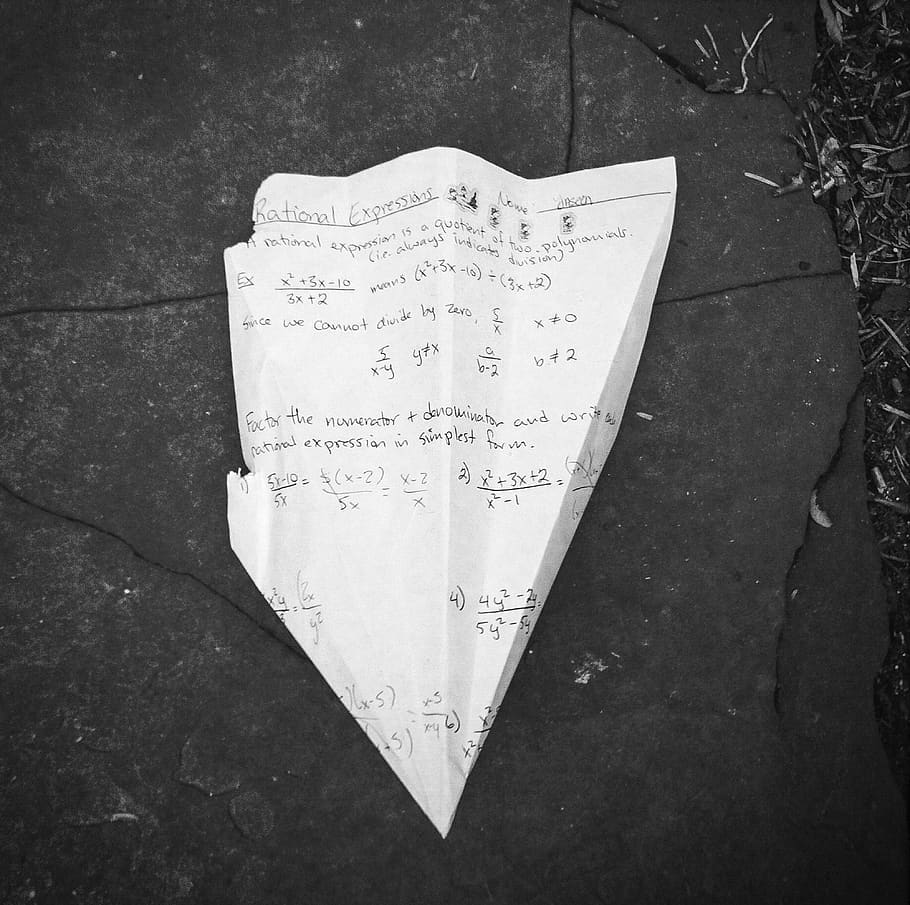 Rational Expressions Name
A rational expression is a quotient of two polynomials.
(i.e. always indicates division)
Ex x²+3x-10/3x+2 means (x²+3x-10) ÷ (3x+2)
Since we cannot divide by zero, 5/x x≠0
5/x-y y≠x a/b-2 b≠2
Factor the numerator + denominator and write
rational expression in simplest form.
1) 5x-10/5x = 5(x-2)/5x = x-2/x 2) x²+3x+2/x²-1 =
x²y = 2x/y² 4) 4y²-2y/5y²-5y =
)(x-5) = x-5/x-4 6) x²
-5) x²-